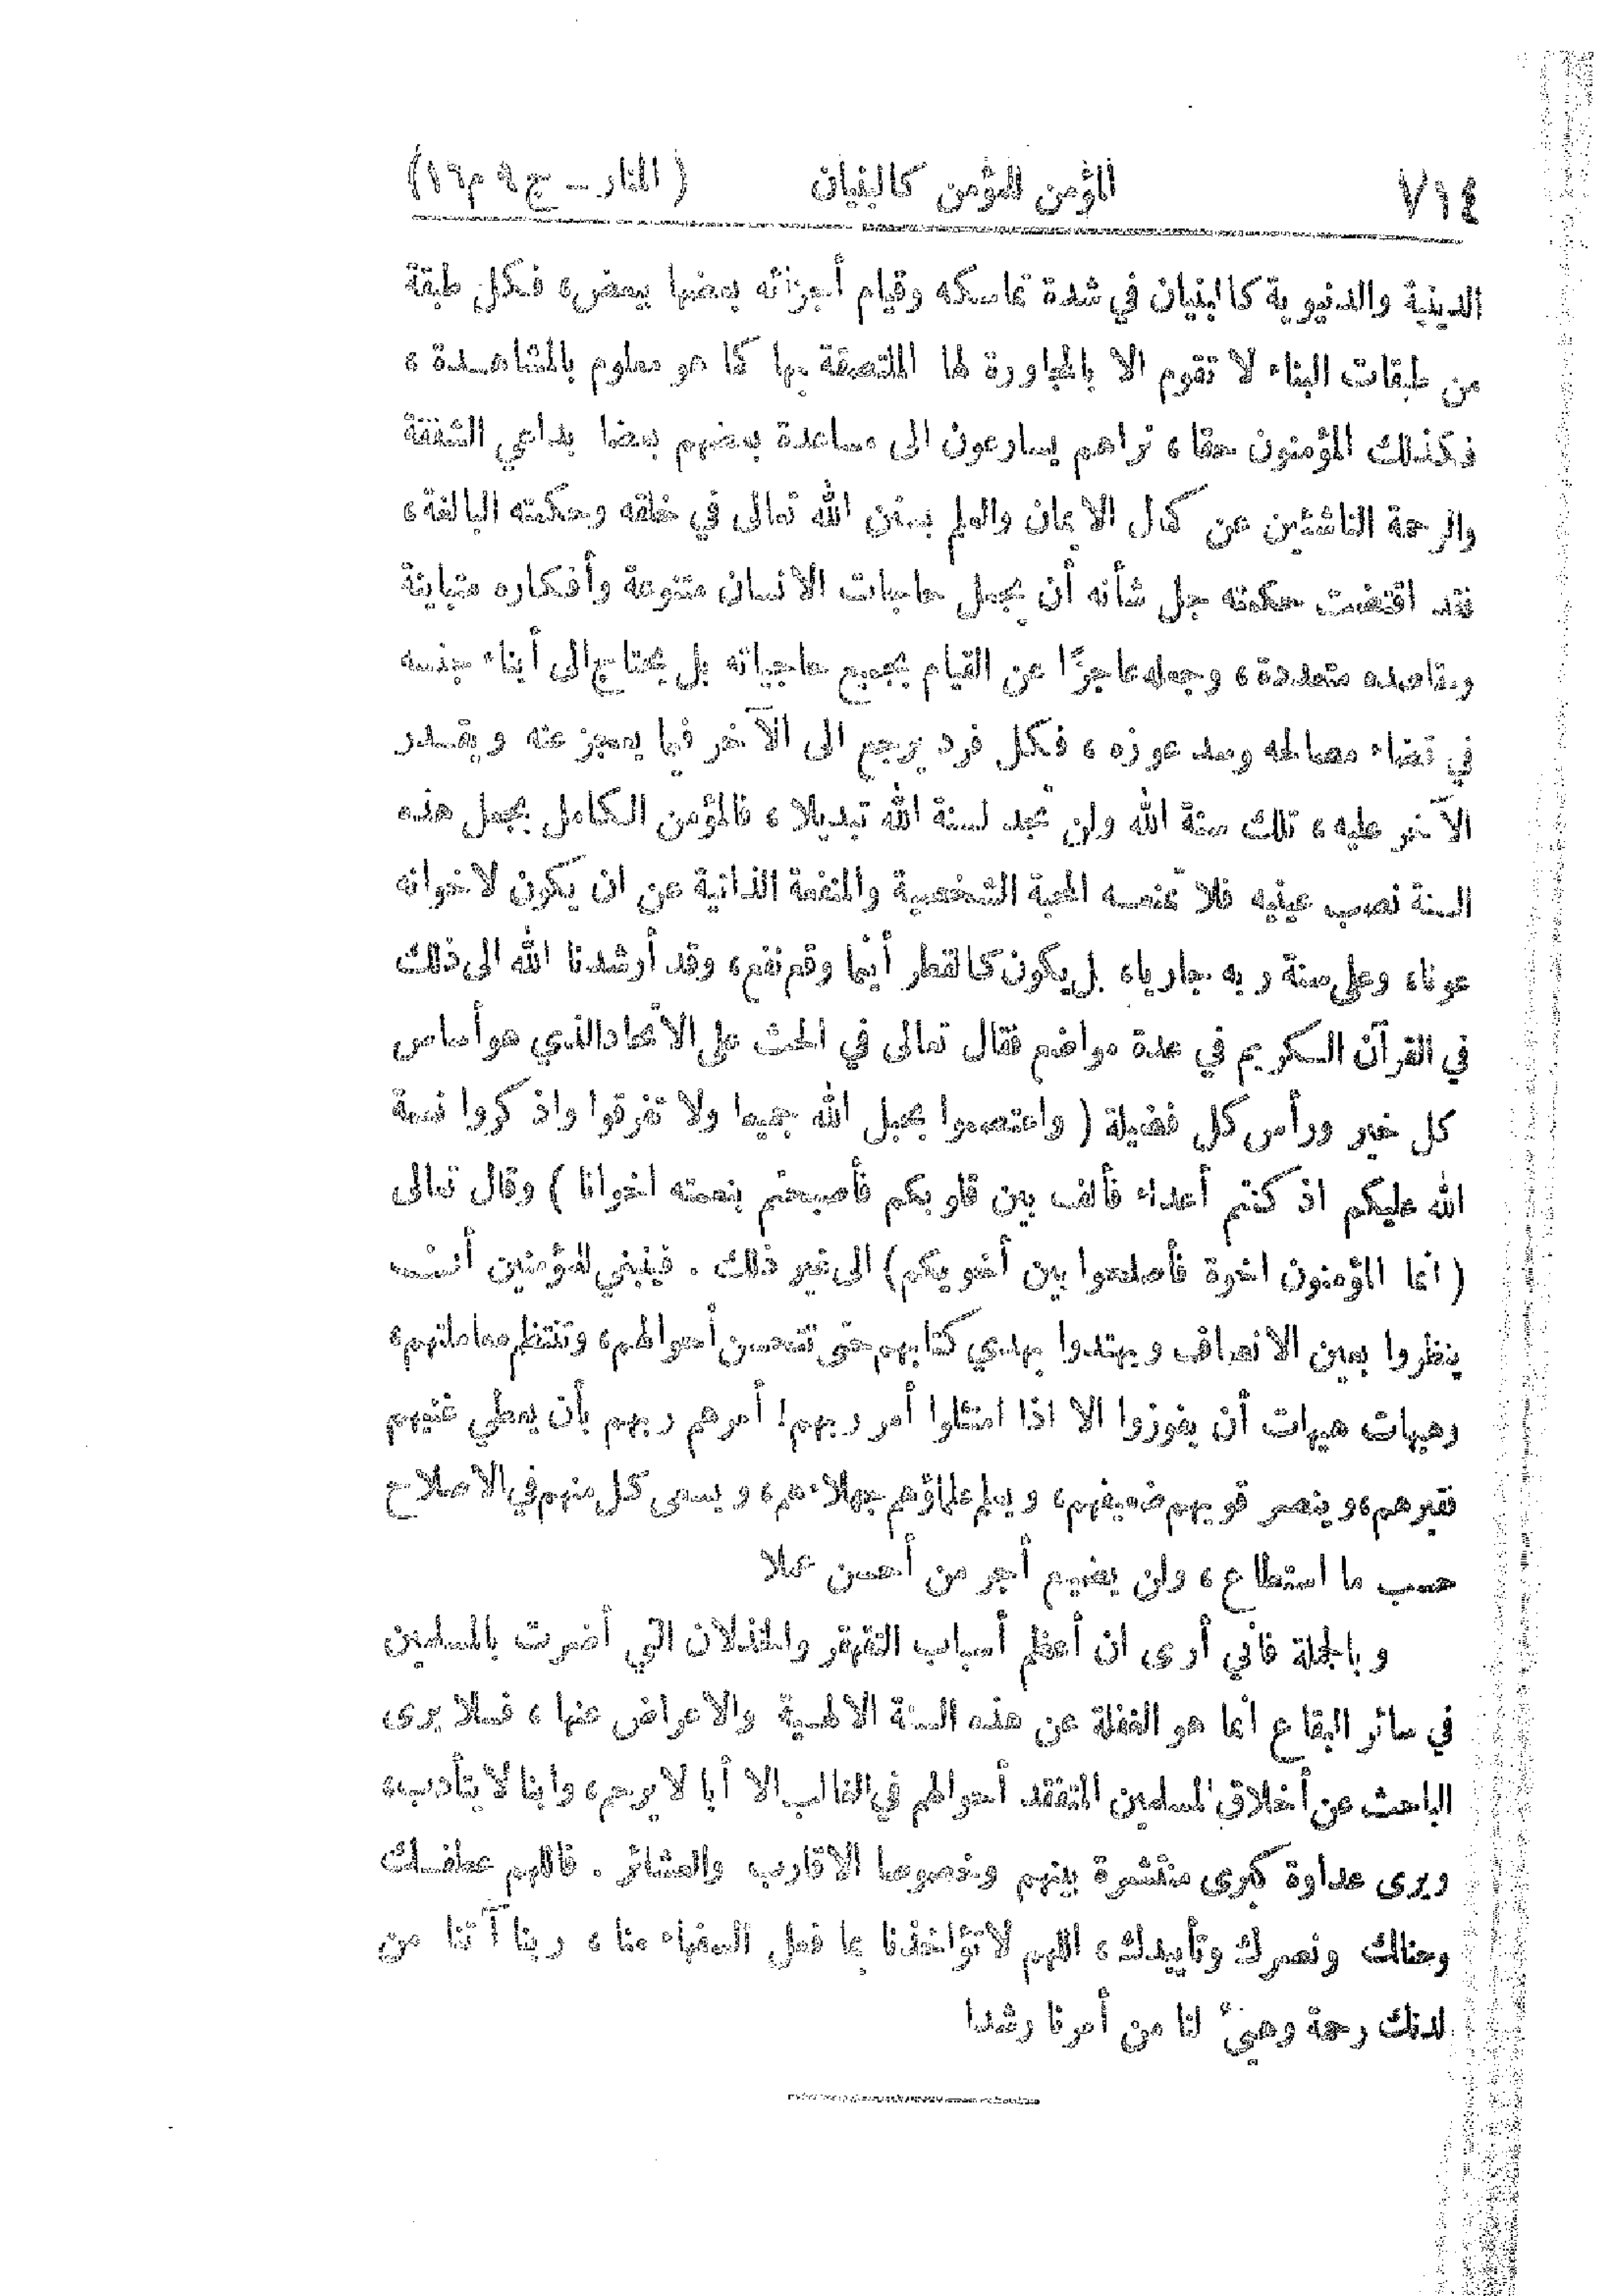 ٧١٤ المؤمن للمؤمن كالبنيان (المنار – ج ٩ م ١٦)
الدينية والدنيوية كالبنيان في شدة تماسكه وقيام أجزائه بعضها ببعض، فكل طبقة
من طبقات البناء لا تقوم الا بالمجاورة لها الملتصقة بها كما هو معلوم بالمشاهدة ،
فكذلك المؤمنون حقا، تراهم يسارعون الى مساعدة بعضهم بعضا بداعي الشفقة
والرحمة الناشئين عن كمال الايمان والعلم بسنن الله تعالى في خلقه وحكمته البالغة،
فقد اقتضت حكمته جل شأنه أن يجعل حاجات الانسان متنوعة وأفكاره متباينة
ومقاصده متعددة، وجعله عاجزًا عن القيام بجميع حاجياته بل يحتاج الى أبناء جنسه
في قضاء مصالحه وسد عوزه، فكل فرد يرجع الى الآخر فيما يعجز عنه ويقدر
الآخر عليه، تلك سنة الله ولن تجد لسنة الله تبديلا، فالمؤمن الكامل يجعل هذه
السنة نصب عينيه فلا تمنعه المحبة الشخصية والمنفعة الذاتية عن ان يكون لاخوانه
عونا، وعلى سنة ربه جاريا، بل يكون كالقطر أينما وقع نفع، وقد أرشدنا الله الى ذلك
في القرآن الكريم في عدة مواضع فقال تعالى في الحث على الاتحاد الذي هو أساس
كل خير ورأس كل فضيلة ( واعتصموا بحبل الله جميعا ولا تفرقوا واذكروا نعمة
الله عليكم اذ كنتم أعداء فألف بين قلوبكم فأصبحتم بنعمته اخوانا ) وقال تعالى
( انما المؤمنون اخوة فأصلحوا بين أخويكم) الى غير ذلك . فينبغي للمؤمنين أن
ينظروا بعين الانصاف ويهتدوا بهدي كتابهم حتى تتحسن أحوالهم، وتنتظم معاملتهم،
وهيهات هيهات أن يفوزوا الا اذا امتثلوا أمر ربهم! أمرهم ربهم بأن يعطي غنيهم
فقيرهم، وينصر قويهم ضعيفهم، ويعلم علماؤهم جهلاءهم، ويسعى كل منهم في الاصلاح
حسب ما استطاع، ولن يضيع أجر من أحسن عملا
وبالجملة فاني أرى ان أعظم أسباب التقهقر والخذلان التي أضرت بالمسلمين
في سائر البقاع انما هو الغفلة عن هذه السنة الالهية والاعراض عنها، فلا يرى
الباحث عن أخلاق المسلمين المتفقد أحوالهم في الغالب الا أبا لا يرحم، وابنا لا يتأدب،
ويرى عداوة كبرى منتشرة بينهم وخصوصا الاقارب والعشائر . فاللهم عطفك
وحنانك ونصرك وتأييدك، اللهم لا تؤاخذنا بما فعل السفهاء منا، ربنا آتنا من
لدنك رحمة وهيئ لنا من أمرنا رشدا